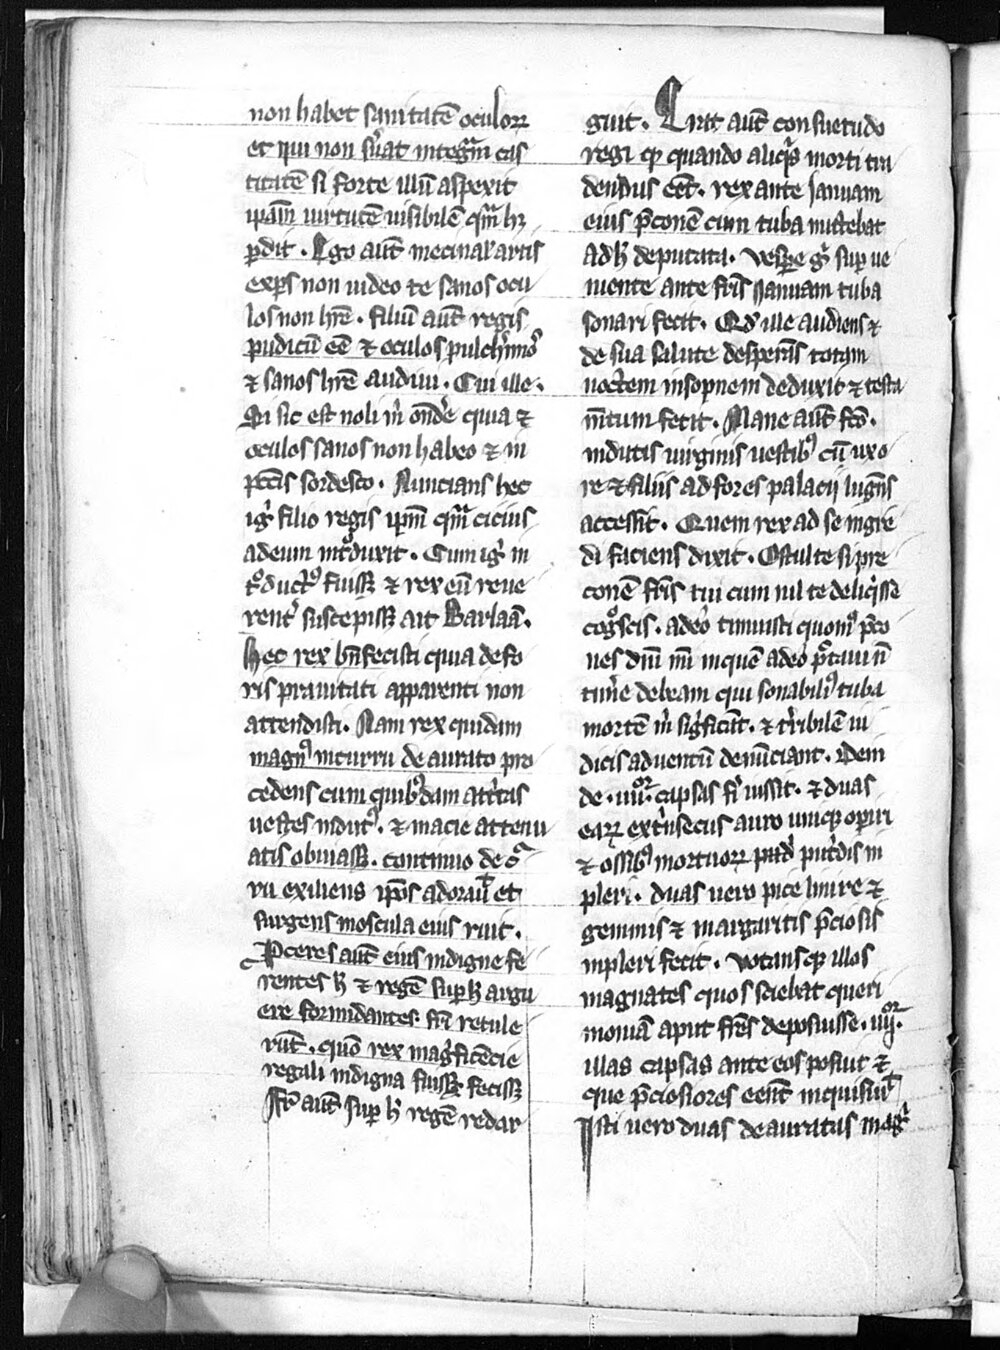 non habet sanitatē oculoꝝ
et qui non ẜuat integrā cas
titatē si forte illū aspexit
ip̄am uirtutē uisibilē qm̄ hꝫ
ꝑdit . Ego aut̄ mecinal' artis
exꝑs non uideo te sanos ocu
los non hr̄e . filiū aut̄ regis
pudicū eē ⁊ oculos pulch'imos
⁊ sanos hr̄e audiui . Cui ille .
Si sic est noli m̄ ond'e quia ⁊
oculos sanos non habeo ⁊ in
pctīs sordesco . Nuncians hec
ig' filio regis ip̄m qm̄ cicius
ad eum int°duxit . Cum ig' in
t°duct⁹ fuissꝫ ⁊ rex eū reue
rent' suscepissꝫ ait Barlaā .
hec rex bn̄ fecisti quia de fo
ris prauitati apparenti non
attendisti . Nam rex quidam
magn⁹ in curru de aurato pro
cedens cum quib⁹dam attritas
uestes indut⁹ . ⁊ macie attenu
atis obuiassꝫ . continuo de cur
ru exiliens ip̄os adorauit et
surgens in oscula eius ruit .
Pceres aut̄ eius indigne fe
rentes h̄ ⁊ regē suꝑ h̄ argu
ere formidantes . fr̄i retule
rūt . quō rex mag'ficēcie
regali indigna fuissꝫ fecissꝫ
Fr̄ aut̄ suꝑ h̄ regē redar
guit . Erat aut̄ consuetudo
regi qꝫ quando aliq's morti tra
dendus eēt . rex ante ianuam
eius p̄conē cum tuba mittebat
ad h̄ deputata . Vespere g' suꝑ ue
niente ante fr̄is ianuam tuba
sonari fecit . Qd' ille audiens ⁊
de sua salute desperans totam
noctem insopnem deduxit ⁊ testa
m̄tum fecit . Mane aut̄ fcō .
indutis uirginis uestib⁹ cū uxo
re ⁊ filiis ad fores palacii lugēs
accessit . Quem rex ad se ingre
di faciens dixit . O stulte si pre
conē fr̄is tui cum nil te deliq'sse
cog°scis . adeo timuisti quom° p̄co
nes dn̄i m̄i in quē adeo p̄caui n̄
tim'e debeam qui sonabili⁹ tuba
mortē m̄ sig'ficāt . ⁊ t'ribilē iu
dicis aduentū denūciant . Dein
de . iiii°ʳ . capsas fi'i iussit . ⁊ duas
earꝝ ext'nsecus auro undiqꝫ operiri
⁊ ossib⁹ mortuorꝝ put'dis in
pleri . duas uero pice linire ⁊
gemmis ⁊ margaritis p̄ciosis
inpleri fecit . Votansqꝫ illos
magnates quos sciebat queri
moniā aput fr̄es deposuisse . iiii°ʳ .
illas capsas ante eos posuit ⁊
que p̄ciosiores eēnt inquisiuit
Isti uero duas deauratas mag'